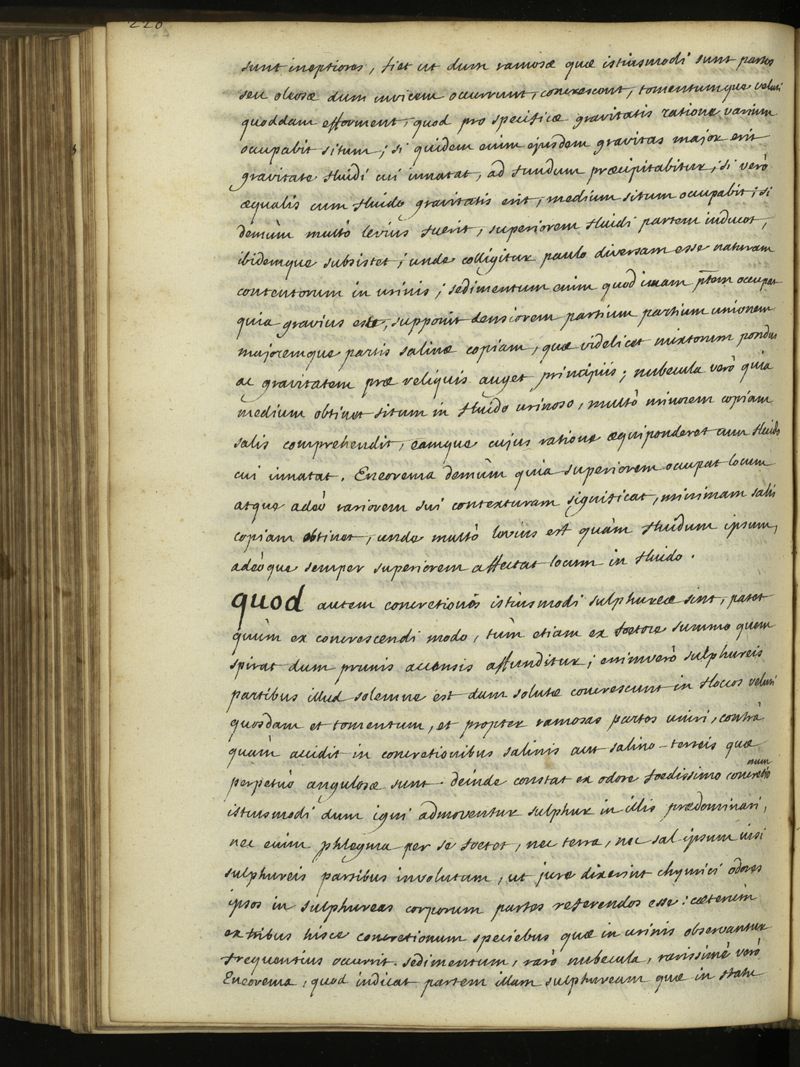 220
sunt ineptiores, fiet ut dum ramosæ quæ istiusmodi sunt partes
seu oleosæ dum invicem occurrunt, concrescant, tomentumque veluti
quoddam efforment, quod pro specificæ gravitatis ratione varium
occupabit situm; si quidem enim ejusdem gravitas major erit
gravitate fluidi cui innatat, ad fundum præcipitabitur; si verò
æqualis cum fluido gravitatis erit, medium situm occupabit; si
demùm multò levius fuerit, superiorem fluidi partem induet,
ibidemque subsistet; unde colligitur paulo diversam esse naturam
contentorum in urinis; sedimentum enim quod imam ptem occupat
quia gravius este, supponit densiorem partium partium unionem
majoremque partis salinæ copiam, quæ videlicet mixtorum pondus
ac gravitatem præ reliquis auget principiis; nubecula verò quia
medium obtinet situm in fluido urinoso, multò minorem copiam
salis comprehendit, eamque cujus ratione æquiponderet cum fluido
cui innatat. Eneorema demùm quia superiorem occupat locum
atque adeò rariorem sui contexturam significat, minimam salis
copiam obtinet, unde multò levius est quàm fluidum ipsum,
adeòque semper superiorem affectat locum in fluido.
quod autem concretiones istiusmodi sulphureæ sint, patet
quùm ex concrescendi modo, tùm etiam ex foetore summo quem
spirat dum prunis accensis affunditur; enimverò sulphureis
partibus illud solemne est dum solutæ concrescunt in floccos veluti
quosdam et tomentum, et propter ramosas partes uniri, contrà
quàm accidit in concretionibus salinis aut salino-terreis quæ
perpetuò angulosæ sunt. deinde constat ex odore foedissimo concretionum
istiusmodi dum igni admoventur sulphur in illis prædominari,
nec enim phlegma per se foetet, nec terra, nec sal ipsum nisi
sulphureis partibus involutum, ut jure dixerint chymici odores
ipsos in sulphureas corporum partes referendos esse: cæterùm
ex tribus hisce concretionum speciebus quæ in urinis observantur
frequentius occurrit sedimentum, rarò nubecula, rarissimè verò
Eneorema, quod indicat partem illam sulphuream quæ in statu